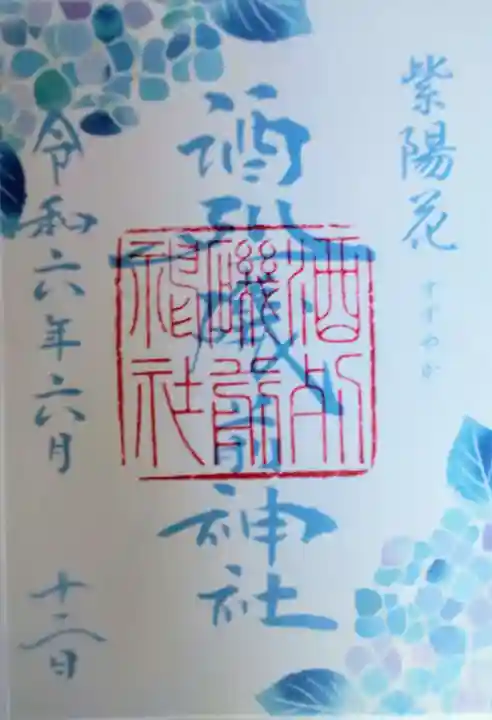 紫陽花
すずやか
酒列磯前神社
酒列
磯前
神社
令和六年六月
十二日